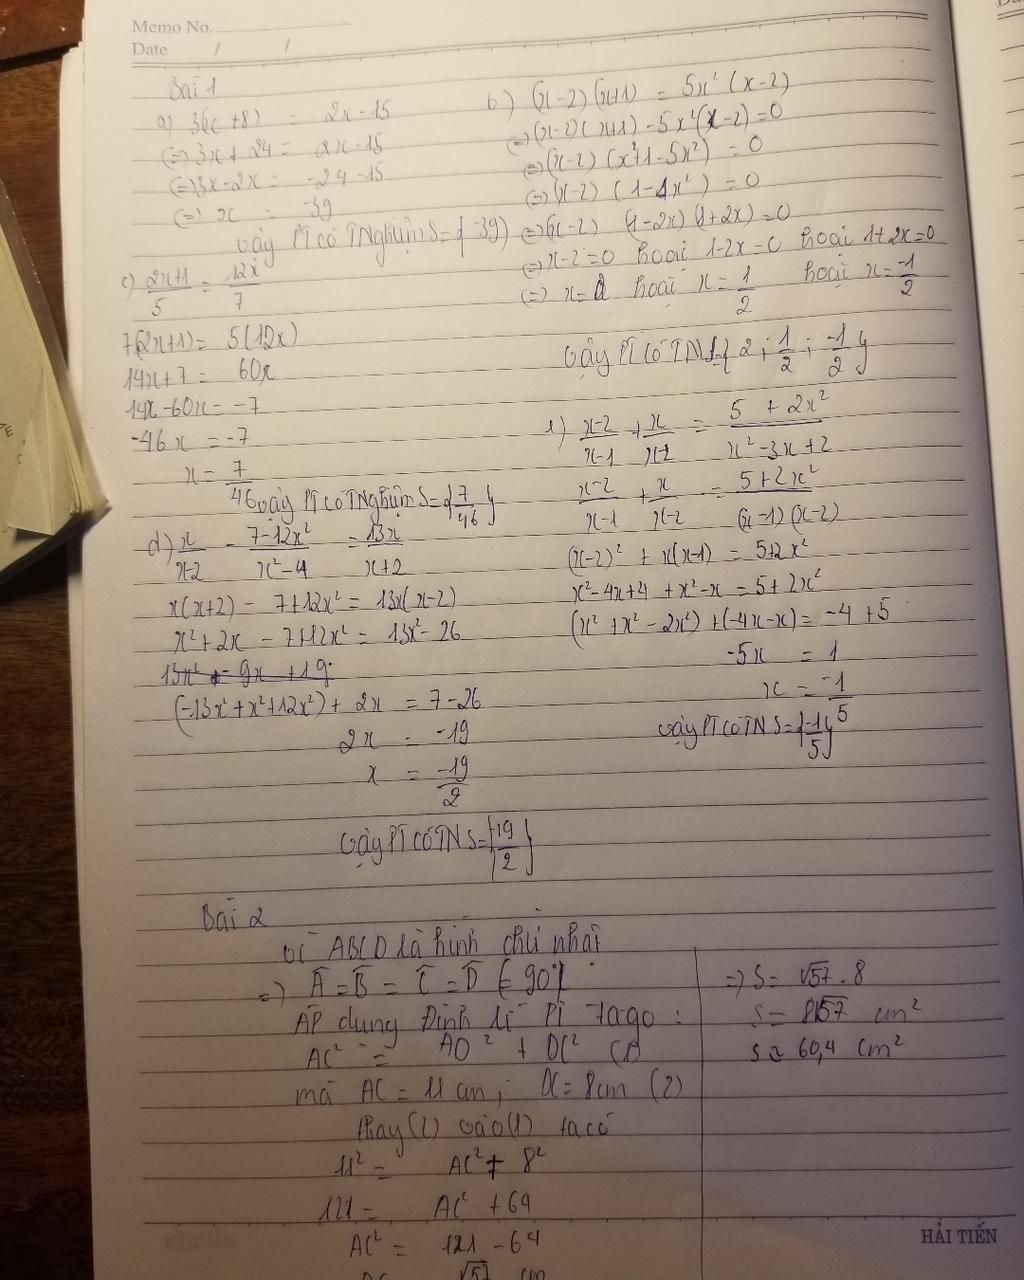 Memo No.
Date / /
Bài 1
a) 3(x+8) = 2x-15
(=) 3x+24 = 2x-15
(=) 3x-2x = -24-15
(=) x = -39
vậy PT có TNghiệm S={-39}
b) (x-2)(x+1) = 5x²(x-2)
(=) (x-2)(x+1)-5x²(x-2)=0
(=) (x-2)(x²+1-5x²) = 0
(=) (x-2) (1-4x²) = 0
(=) (x-2) (1-2x)(1+2x)=0
(=) x-2=0 hoặc 1-2x=0 hoặc 1+2x=0
(=) x=2 hoặc x=1/2 hoặc x=-1/2
Vậy PT có TN S={2; 1/2; -1/2}
c) (2x+1)/5 = 12x/7
7(2x+1) = 5(12x)
14x+7 = 60x
14x-60x = -7
-46x = -7
x = 7/46
vậy PT có TNghiệm S={7/46}
d) x/(x-2) - (7-12x²)/(x²-4) = 13x/(x+2)
x(x+2) - 7+12x² = 13x(x-2)
x²+2x - 7+12x² = 13x²-26
13x² - 9x +19
(-13x²+x²+12x²)+ 2x = 7-26
2x = -19
x = -19/2
Vậy PT có TN S={19/2}
(x-2)/(x-1) + x/(x-2) = (5 + 2x²)/(x²-3x+2)
(x-2)/(x-1) + x/(x-2) = (5+2x²)/((x-1)(x-2))
(x-2)² + x(x-1) = 5+2x²
x²-4x+4 +x²-x = 5+2x²
(x² +x² -2x²) +(-4x-x) = -4+5
-5x = 1
x = -1/5
vậy PT có TN S={-1/5}
Bài 2
vì ABCD là hình chữ nhật
=) A = B = C = D (= 90°)
ÁP dụng Định lí Pi Tago:
AC² = AD² + DC² (1)
mà AC = 11 cm; DC = 8cm (2)
thay (2) vào (1) ta có
11² = AC² + 8²
121 = AC² + 64
AC² = 121 - 64
√57 cm
=) S = √57 . 8
S = 8√57 cm²
S ≈ 60,4 cm²
HẢI TIẾN